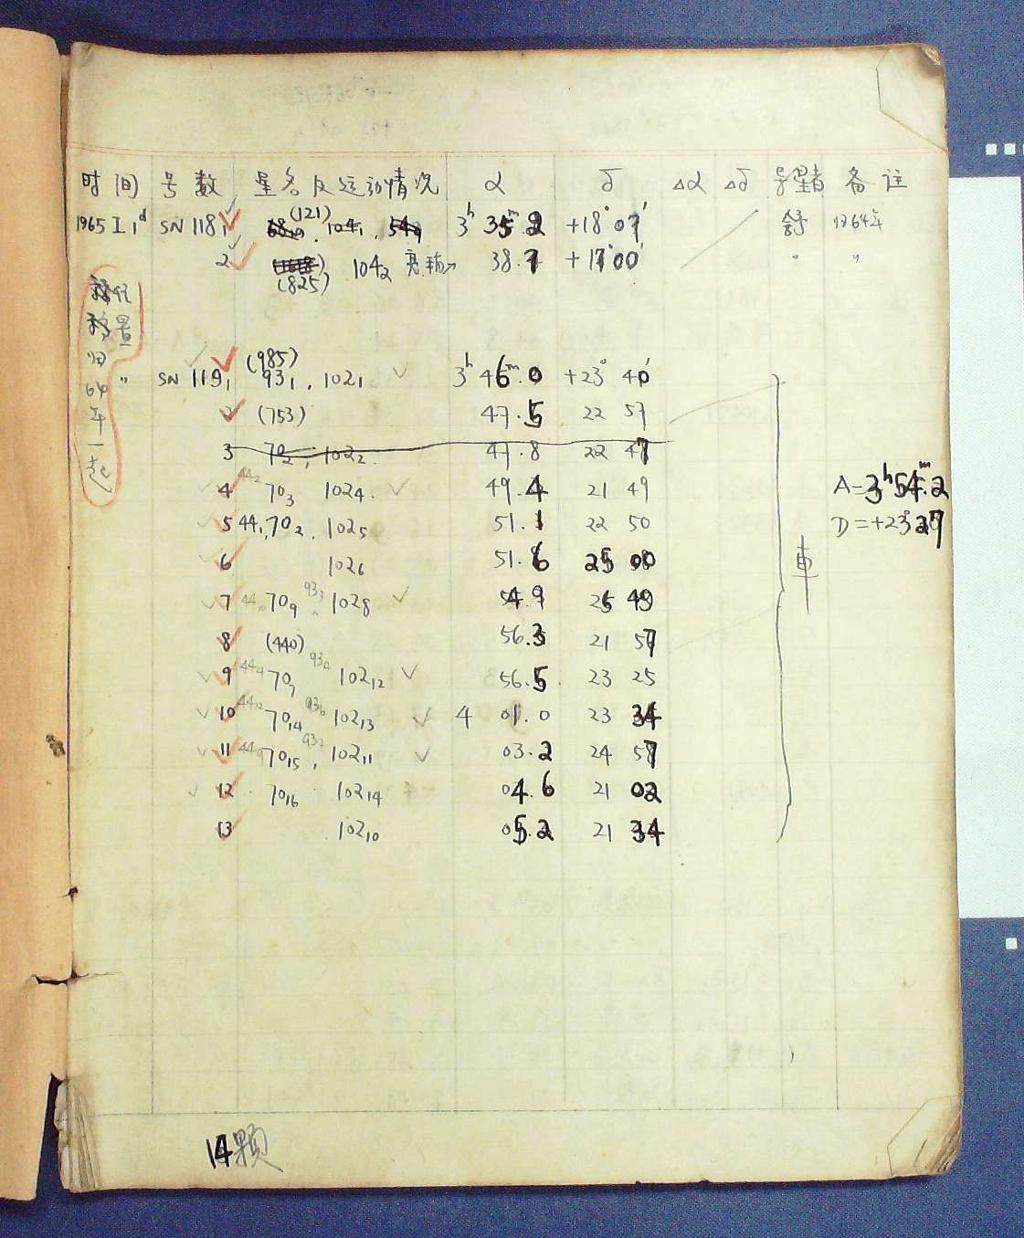 时间 号数 星名及运动情况 α δ Δα Δδ 寻星者 备注
1965 I 1ᵈ SN 118₁ (121) 104₁. 3ʰ 35ᵐ.2 +18°07′ 舒 1964年
2 (825) 104₂ 38.7 +17°00′ " "
移置
归
64
年
一
起
" SN 119₁ (985) 93₁, 102₁ 3ʰ 46ᵐ.0 +23° 40′
2 (753) 47.5 22 57
3 70₂, 102₂. 47.8 22 47
4 44₂ 70₃ 102₄. 49.4 21 49
5 44₁, 70₂. 102₅ 51.1 22 50
6 102₆ 51.6 25 00
7 70₉ 93₃ 102₈ 54.9 49
8 (440) 56.3 21 57
9 44₄ 70₇ 93₄ 102₁₂ 56.5 23 25
10 44₁₂ 70₁₄ 93₆ 102₁₃ 4 01.0 23 34
11 70₁₅, 102₁₁ 03.2 24 57
12 70₁₆ 102₁₄ 04.6 21 02
13 102₁₀ 05.2 21 34
A=3ʰ54ᵐ.2
D=+23°27′
車
14颗